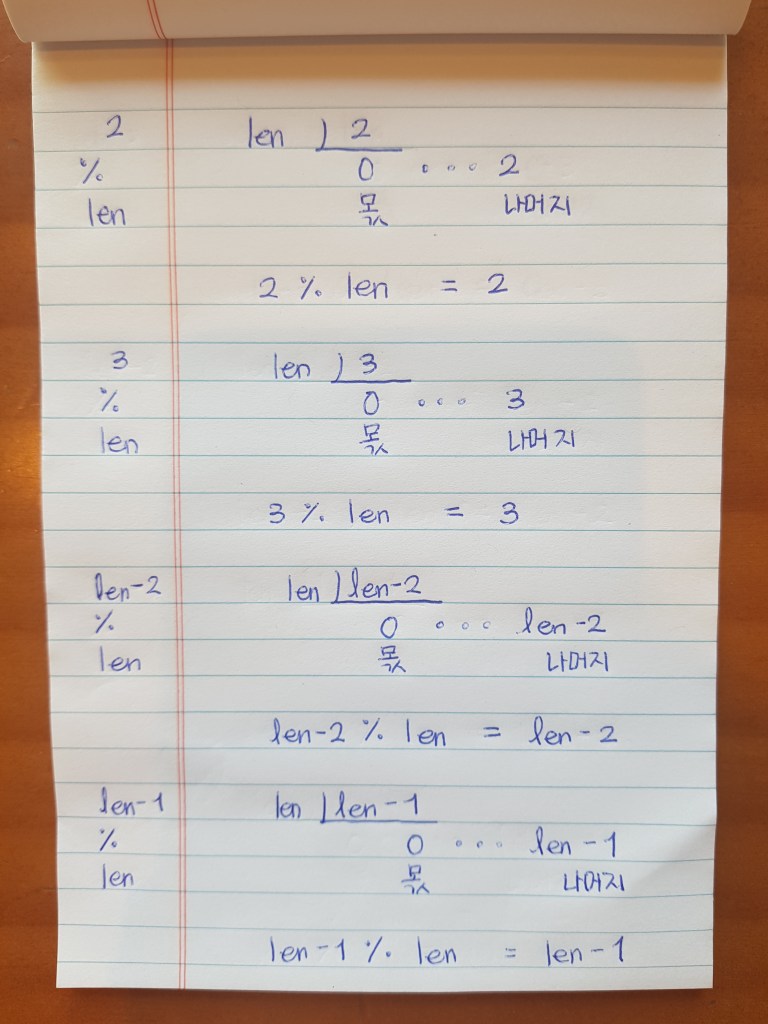 2 len ) 2
% 0 ∘∘∘ 2
len 몫 나머지
2 % len = 2
3 len ) 3
% 0 ∘∘∘ 3
len 몫 나머지
3 % len = 3
len-2 len ) len-2
% 0 ∘∘∘ len-2
len 몫 나머지
len-2 % len = len-2
len-1 len ) len-1
% 0 ∘∘∘ len-1
len 몫 나머지
len-1 % len = len-1